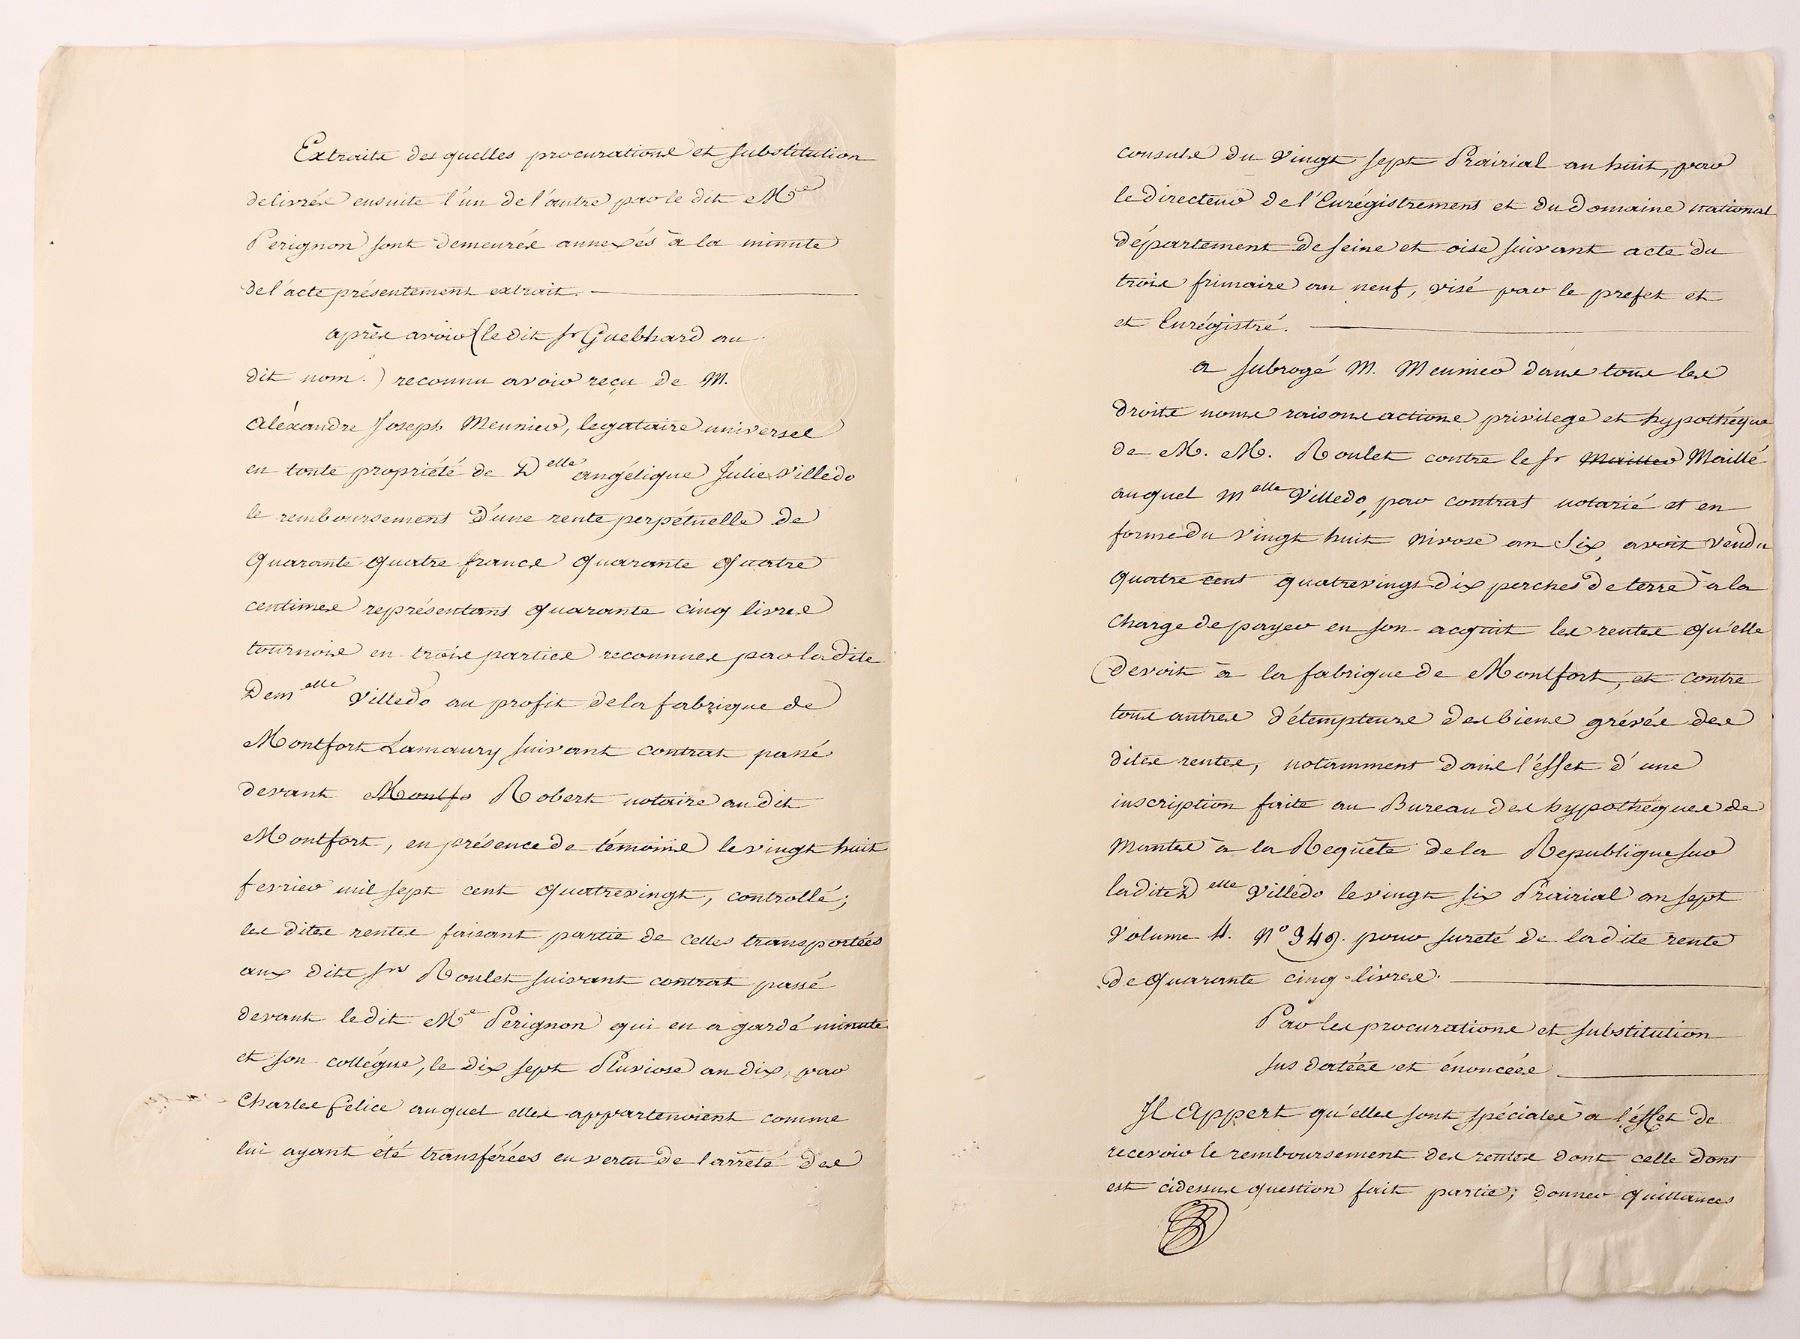 Extraits des quelles procurations et substitution
delivrés ensuite l'un de l'autre par le dit Me
Perignon sont demeurés annexés à la minute
de l'acte présentement extrait.
après avoir (le dit sr Guebhard au
dit nom.) reconnu avoir reçu de M.
aléxandre Joseph Meunier, legataire universel
en toute propriété de Delle angélique Julie Villedo
le remboursement d'une rente perpétuelle de
quarante quatre francs quarante quatre
centimes représentans quarante cinq livres
tournois en trois parties reconnues par la dite
Demelle Villedo au profit de la fabrique de
Montfort Lamaury suivant contrat passé
devant Montfo Robert notaire au dit
Montfort, en présence de témoins le vingt huit
fevrier mil sept cent quatrevingt, controllé;
les dites rentes faisant partie de celles transportées
aux dits srs Roulet suivant contrat passé
devant le dit Me Perignon qui en a gardé minute
et son collégue, le dix sept Pluviose an dix, par
Charles felice auquel elles appartenoient comme
lui ayant été transférées en vertu de l'arrêté des
consuls du vingt sept Prairial an huit, par
le directeur de l'Enrégistrement et du domaine national
département de seine et oise suivant acte du
trois frimaire an neuf, visé par le prefet et
et Enrégistré.
a subrogé M. Meunier dans tous les
droits noms raisons actions privilege et hypothéque
de M. M. Roulet contre le sr Mailler Maillé
auquel Melle Villedo, par contrat notarié et en
forme du vingt huit nivose an six, avoit vendu
quatre cent quatrevingt dix perches de terre à la
charge de payer en son acquit les rentes qu'elle
devoit à la fabrique de Montfort, et contre
tous autres détempteurs des biens grévés des
dites rentes, notamment dans l'éffet d'une
inscription faite au Bureau des hypothéques de
Mantes à la Requête de la Republique sur
la dite Delle Villédo le vingt six Prairial an sept
volume 4. No 349. pour sureté de la dite rente
de quarante cinq livres.
Par les procurations et substitution
sus datées et énoncées
Il Appert qu'elles sont spéciales à l'éffet de
recevoir le remboursement des rentes dont celle dont
est cidessus question fait partie; donner quittances